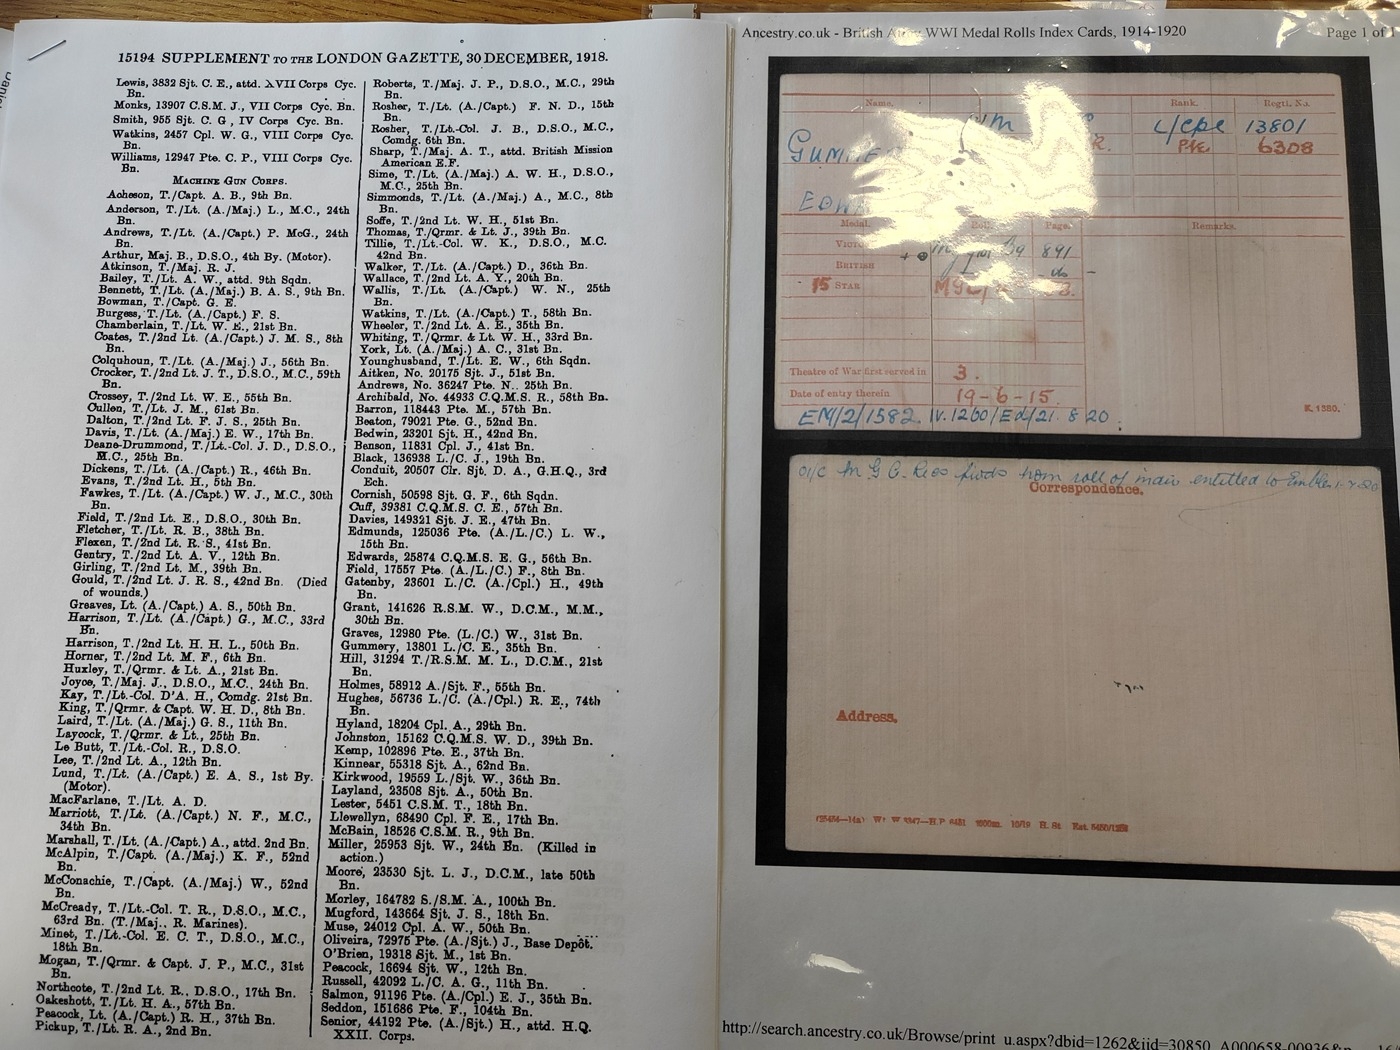 15194 SUPPLEMENT TO THE LONDON GAZETTE, 30 DECEMBER, 1918.
Lewis, 3832 Sjt. C. E., attd. XVII Corps Cyc.
Bn.
Monks, 13907 C.S.M. J., VII Corps Cyc. Bn.
Smith, 955 Sjt. C. G , IV Corps Cyc. Bn.
Watkins, 2457 Cpl. W. G., VIII Corps Cyc.
Bn.
Williams, 12947 Pte. C. P., VIII Corps Cyc.
Bn.
MACHINE GUN CORPS.
Acheson, T./Capt. A. B., 9th Bn.
Anderson, T./Lt. (A./Maj.) L., M.C., 24th
Bn.
Andrews, T./Lt. (A./Capt.) P. McG., 24th
Bn.
Arthur, Maj. B., D.S.O., 4th By. (Motor).
Atkinson, T./Maj. R. J.
Bailey, T./Lt. A. W., attd. 9th Sqdn.
Bennett, T./Lt. (A./Maj.) B. A. S., 9th Bn.
Bowman, T./Capt. G. E.
Burgess, T./Lt. (A./Capt.) F. S.
Chamberlain, T./Lt. W. E., 21st Bn.
Coates, T./2nd Lt. (A./Capt.) J. M. S., 8th
Bn.
Colquhoun, T./Lt. (A./Maj.) J., 56th Bn.
Crocker, T./2nd Lt. J. T., D.S.O., M.C., 59th
Bn.
Crossey, T./2nd Lt. W. E., 55th Bn.
Cullen, T./Lt. J. M., 61st Bn.
Dalton, T./2nd Lt. F. J. S., 25th Bn.
Davis, T./Lt. (A./Maj.) E. W., 17th Bn.
Deane-Drummond, T./Lt.-Col. J. D., D.S.O.,
M.C., 25th Bn.
Dickens, T./Lt. (A./Capt.) R., 46th Bn.
Evans, T./2nd Lt. H., 5th Bn.
Fawkes, T./Lt. (A./Capt.) W. J., M.C., 30th
Bn.
Field, T./2nd Lt. E., D.S.O., 30th Bn.
Fletcher, T./Lt. R. B., 38th Bn.
Flexen, T./2nd Lt. R. S., 41st Bn.
Gentry, T./2nd Lt. A. V., 12th Bn.
Girling, T./2nd Lt. M., 39th Bn.
Gould, T./2nd Lt. J. R. S., 42nd Bn. (Died
of wounds.)
Greaves, Lt. (A./Capt.) A. S., 50th Bn.
Harrison, T./Lt. (A./Capt.) G., M.C., 33rd
Bn.
Harrison, T./2nd Lt. H. H. L., 50th Bn.
Horner, T./2nd Lt. M. F., 6th Bn.
Huxley, T./Qrmr. & Lt. A., 21st Bn.
Joyce, T./Maj. J., D.S.O., M.C., 24th Bn.
Kay, T./Lt.-Col. D'A. H., Comdg. 21st Bn.
King, T./Qrmr. & Capt. W. H. D., 8th Bn.
Laird, T./Lt. (A./Maj.) G. S., 11th Bn.
Laycock, T./Qrmr. & Lt., 25th Bn.
Le Butt, T./Lt.-Col. R., D.S.O.
Lee, T./2nd Lt. A., 12th Bn.
Lund, T./Lt. (A./Capt.) E. A. S., 1st By.
(Motor).
MacFarlane, T./Lt. A. D.
Marriott, T./Lt. (A./Capt.) N. F., M.C.,
34th Bn.
Marshall, T./Lt. (A./Capt.) A., attd. 2nd Bn.
McAlpin, T./Capt. (A./Maj.) K. F., 52nd
Bn.
McConachie, T./Capt. (A./Maj.) W., 52nd
Bn.
McCready, T./Lt.-Col. T. R., D.S.O., M.C.,
63rd Bn. (T./Maj., R. Marines).
Minet, T./Lt.-Col. E. C. T., D.S.O., M.C.,
18th Bn.
Mogan, T./Qrmr. & Capt. J. P., M.C., 31st
Bn.
Northcote, T./2nd Lt. R., D.S.O., 17th Bn.
Oakeshott, T./Lt. H. A., 57th Bn.
Peacock, Lt. (A./Capt.) R. H., 37th Bn.
Pickup, T./Lt. R. A., 2nd Bn.
Roberts, T./Maj. J. P., D.S.O., M.C., 29th
Bn.
Rosher, T./Lt. (A./Capt.) F. N. D., 15th
Bn.
Rosher, T./Lt.-Col. J. B., D.S.O., M.C.,
Comdg. 6th Bn.
Sharp, T./Maj. A. T., attd. British Mission
American E.F.
Sime, T./Lt. (A./Maj.) A. W. H., D.S.O.,
M.C., 25th Bn.
Simmonds, T./Lt. (A./Maj.) A., M.C., 8th
Bn.
Soffe, T./2nd Lt. W. H., 51st Bn.
Thomas, T./Qrmr. & Lt. J., 39th Bn.
Tillie, T./Lt.-Col. W. K., D.S.O., M.C.
42nd Bn.
Walker, T./Lt. (A./Capt.) D., 36th Bn.
Wallace, T./2nd Lt. A. Y., 20th Bn.
Wallis, T./Lt. (A./Capt.) W. N., 25th
Bn.
Watkins, T./Lt. (A./Capt.) T., 58th Bn.
Wheeler, T./2nd Lt. A. E., 35th Bn.
Whiting, T./Qrmr. & Lt. W. H., 33rd Bn.
York, Lt. (A./Maj.) A. C., 31st Bn.
Younghusband, T./Lt. E. W., 6th Sqdn.
Aitken, No. 20175 Sjt. J., 51st Bn.
Andrews, No. 36247 Pte. N., 25th Bn.
Archibald, No. 44933 C.Q.M.S. R., 58th Bn.
Barron, 118443 Pte. M., 57th Bn.
Beaton, 79021 Pte. G., 52nd Bn.
Bedwin, 23201 Sjt. H., 42nd Bn.
Benson, 11831 Cpl. J., 41st Bn.
Black, 136938 L./C. J., 19th Bn.
Conduit, 20507 Clr. Sjt. D. A., G.H.Q., 3rd
Ech.
Cornish, 50598 Sjt. G. F., 6th Sqdn.
Cuff, 39381 C.Q.M.S. C. E., 57th Bn.
Davies, 149321 Sjt. J. E., 47th Bn.
Edmunds, 125036 Pte. (A./L./C.) L. W.,
15th Bn.
Edwards, 25874 C.Q.M.S. E. G., 56th Bn.
Field, 17557 Pte. (A./L./C.) F., 8th Bn.
Gatenby, 23601 L./C. (A./Cpl.) H., 49th
Bn.
Grant, 141626 R.S.M. W., D.C.M., M.M.,
30th Bn.
Graves, 12980 Pte. (L./C.) W., 31st Bn.
Gummery, 13801 L./C. E., 35th Bn.
Hill, 31294 T./R.S.M. M. L., D.C.M., 21st
Bn.
Holmes, 58912 A./Sjt. F., 55th Bn.
Hughes, 56736 L./C. (A./Cpl.) R. E., 74th
Bn.
Hyland, 18204 Cpl. A., 29th Bn.
Johnston, 15162 C.Q.M.S. W. D., 39th Bn.
Kemp, 102896 Pte. E., 37th Bn.
Kinnear, 55318 Sjt. A., 62nd Bn.
Kirkwood, 19559 L./Sjt. W., 36th Bn.
Layland, 23508 Sjt. A., 50th Bn.
Lester, 5451 C.S.M. T., 18th Bn.
Llewellyn, 68490 Cpl. F. E., 17th Bn.
McBain, 18526 C.S.M. R., 9th Bn.
Miller, 25953 Sjt. W., 24th Bn. (Killed in
action.)
Moore, 23530 Sjt. L. J., D.C.M., late 50th
Bn.
Morley, 164782 S./S.M. A., 100th Bn.
Mugford, 143664 Sjt. J. S., 18th Bn.
Muse, 24012 Cpl. A. W., 50th Bn.
Oliveira, 72975 Pte. (A./Sjt.) J., Base Depôt.
O'Brien, 19318 Sjt. M., 1st Bn.
Peacock, 16694 Sjt. W., 12th Bn.
Russell, 42092 L./C. A. G., 11th Bn.
Salmon, 91196 Pte. (A./Cpl.) E. J., 35th Bn.
Seddon, 151686 Pte. F., 104th Bn.
Senior, 44192 Pte. (A./Sjt.) H., attd. H.Q.
XXII. Corps.
Ancestry.co.uk - British Army WWI Medal Rolls Index Cards, 1914-1920 Page 1 of 1
Name. Rank. Regtl. No.
L/Cpl 13801
GUMMER R. Pte 6308
EDWA
Medal. Roll. Page. Remarks.
VICTO 891
BRITISH do
15 STAR
Theatre of War first served in 3.
Date of entry therein 19-6-15.
EM/2/1582. IV.1260/Ed/21.8.20.
K. 1380.
O i/c M G C. Recs from roll of indiv entitled to
Correspondence.
Address.
http://search.ancestry.co.uk/Browse/print_u.aspx?dbid=1262&iid=30850_A000658-00936&